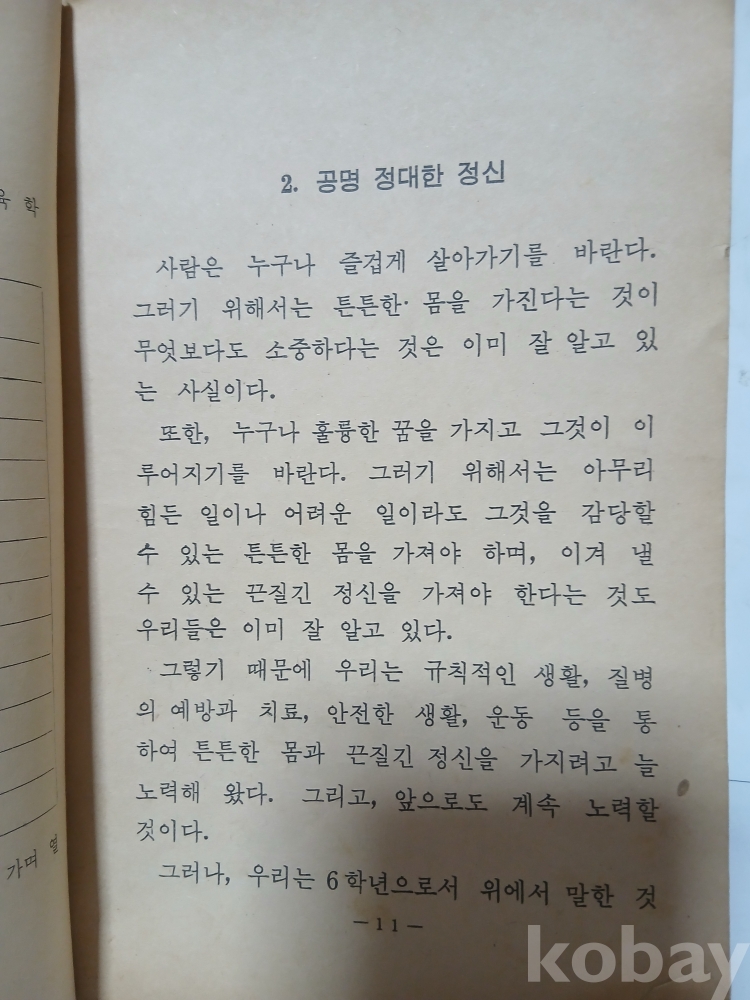 육 학
가며 열
2. 공명 정대한 정신
사람은 누구나 즐겁게 살아가기를 바란다.
그러기 위해서는 튼튼한 몸을 가진다는 것이
무엇보다도 소중하다는 것은 이미 잘 알고 있
는 사실이다.
또한, 누구나 훌륭한 꿈을 가지고 그것이 이
루어지기를 바란다. 그러기 위해서는 아무리
힘든 일이나 어려운 일이라도 그것을 감당할
수 있는 튼튼한 몸을 가져야 하며, 이겨 낼
수 있는 끈질긴 정신을 가져야 한다는 것도
우리들은 이미 잘 알고 있다.
그렇기 때문에 우리는 규칙적인 생활, 질병
의 예방과 치료, 안전한 생활, 운동 등을 통
하여 튼튼한 몸과 끈질긴 정신을 가지려고 늘
노력해 왔다. 그리고, 앞으로도 계속 노력할
것이다.
그러나, 우리는 6학년으로서 위에서 말한 것
－11－
kobay